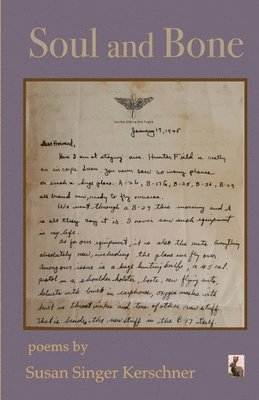 Soul and Bone
UNITED STATES AIR FORCE
January 19, 1945
Dear Howard,
Here I am at staging area Hunter Field is really
an air corps base. You never saw so many planes
on such a huge place. A-26, B-17G, B-25, B-26, B-29
are brand new, ready to fly overseas.
We went through a B-29 this morning and it
is all they say it is. I never saw such equipment
in my life.
As for our equipment, it is also the nuts. Everything
absolutely new, including the plane we fly over.
Among our issue is a huge hunting knife, a .45 cal.
pistol in a shoulder holster, boots, new flying suits,
helmets with built in earphones, oxygen masks with
built in throat mikes and tons of other new stuff.
That is beside the new stuff in the B-17 itself.
poems by
Susan Singer Kerschner